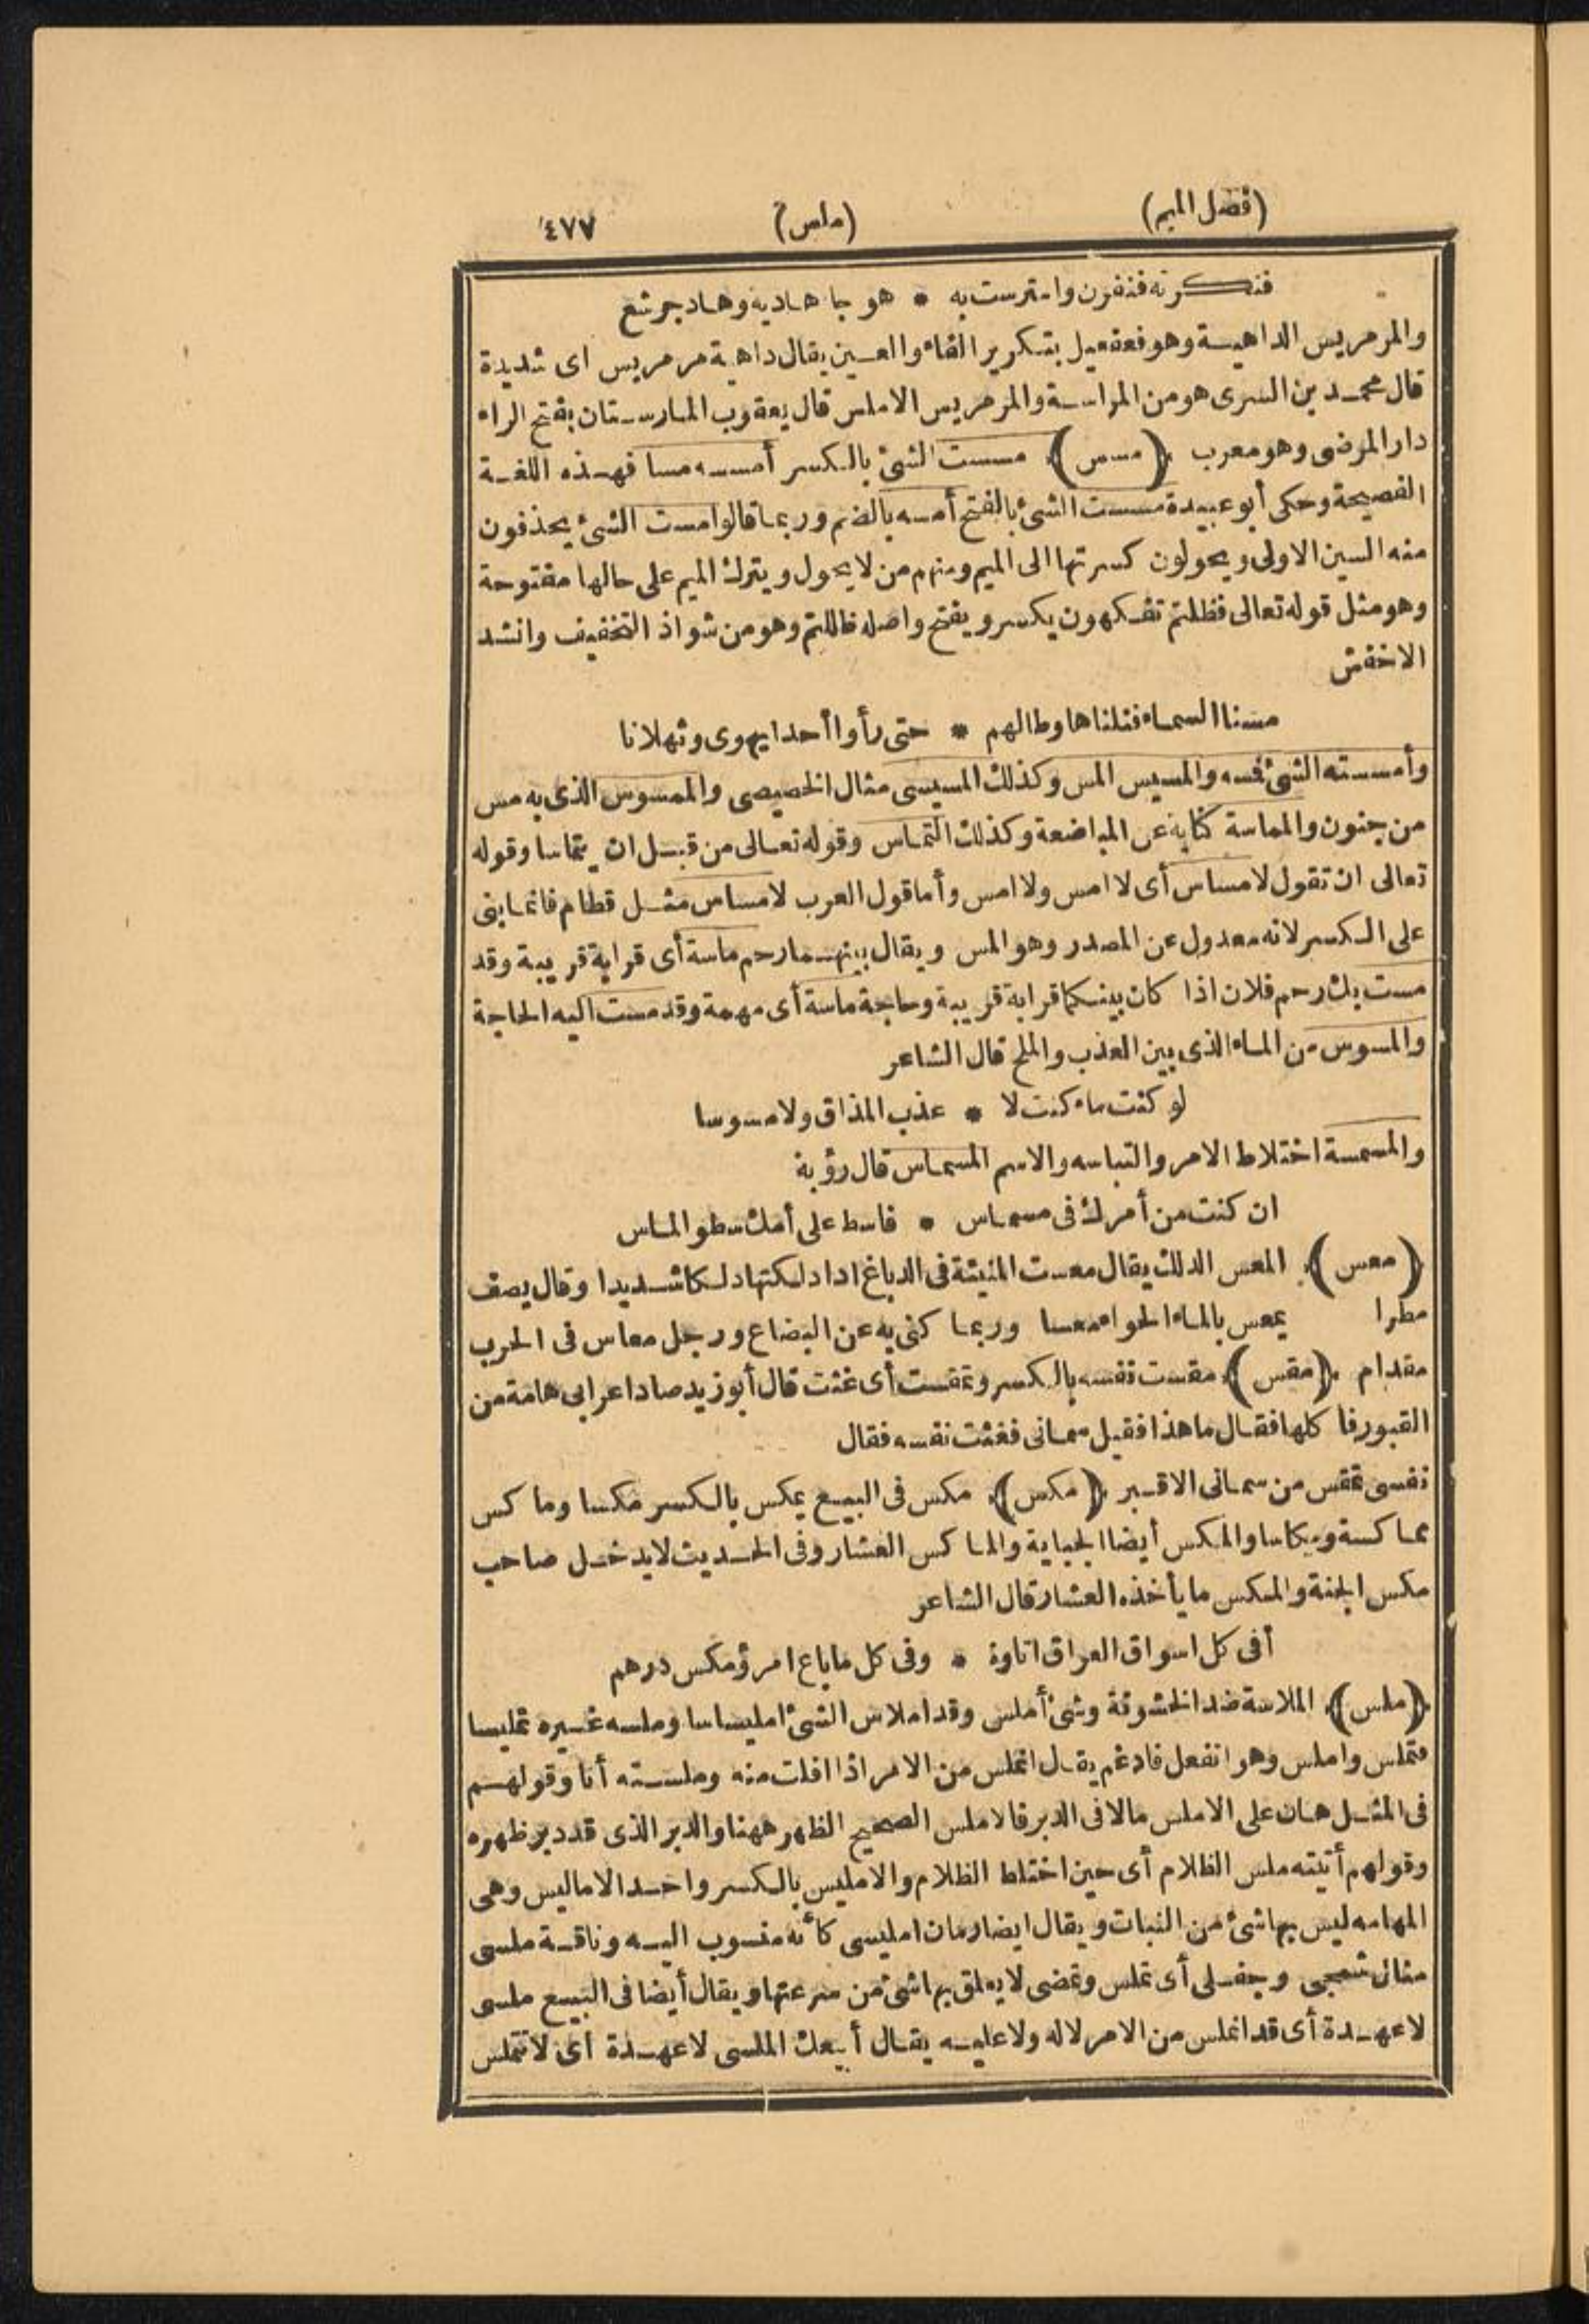 (فصل الميم) (ملس) ٤٧٧
فنكرنه فنفرن وامترست به * هوجاء هادية وهاد جرشع
والمرمريس الداهيسة وهو فعفعيل بتكرير الفاء والعين يقال داهية مرمريس اى شديدة
قال محمد بن السرى هو من المراسة والمرمريس الاملس قال يعقوب المارستان بفتح الراء
دار المرضى وهو معرب (مسس) مسست الشئ بالكسر أمسسه مسا فهذه اللغة
الفصيحة وحكى أبو عبيدة مسست الشئ بالفتح أمسه بالضم وربما قالوا مست الشئ يحذفون
منه السين الاولى ويحولون كسرتها الى الميم ومنهم من لا يحول ويترك الميم على حالها مفتوحة
وهو مثل قوله تعالى فظلتم تفكهون يكسر ويفتح واصله ظللتم وهو من شواذ التخفيف وانشد
الاخفش
مسنا السماء فنلناها وطالهم * حتى رأوا أحدا يهوى وثهلانا
وأمسسته الشئ فسه والمسيس المس وكذلك المسيسى مثال الخصيصى والممسوس الذى به مس
من جنون والمماسة كناية عن المباضعة وكذلك التماس وقوله تعالى من قبل ان يتماسا وقوله
تعالى ان تقول لا مساس أى لا امس ولا امس وأما قول العرب لا مساس مثل قطام فانما بنى
على الكسر لانه معدول عن المصدر وهو المس ويقال بينهما رحم ماسة أى قرابة قريبة وقد
مست بك رحم فلان اذا كان بينكما قرابة قريبة وحاجة ماسة أى مهمة وقد مست اليه الحاجة
والمسوس من الماء الذى بين العذب والملح قال الشاعر
لو كنت ماء كنت لا * عذب المذاق ولا مسوسا
والمسمسة اختلاط الامر والتباسه والاسم المسماس قال رؤبة
ان كنت من أمرك فى مسماس * فاسط على أمك سطو الماس
(معس) المعس الدلك يقال معست المنيئة فى الدباغ اذا دلكتها دلكا شديدا وقال يصف
مطرا يمعس بالماء الجواء معسا وربما كنى به عن البضاع ورجل معاس فى الحرب
مقدام (مقس) مقست نفسه بالكسر وتمقست أى غثت قال أبو زيد صاد اعرابى هامة من
القبور فأ كلها فقال ما هذا فقيل سمانى فغثت نفسه فقال
نفسى تمقس من سمانى الاقبر (مكس) مكس فى البيع يمكس بالكسر مكسا وما كس
مماكسة ومكاسا والمكس أيضا الجباية والماكس العشار وفى الحديث لا يدخل صاحب
مكس الجنة والمكس ما يأخذه العشار قال الشاعر
أفى كل اسواق العراق اتاوة * وفى كل ما باع امرؤ مكس درهم
(ملس) الملاسة ضد الخشونة وشئ أملس وقد املاس الشئ امليساسا وملسه غيره تمليسا
فتملس واملس وهو انفعل فادغم يقال انملس من الامر اذا افلت منه وملسته أنا وقولهم
فى المثل هان على الاملس ما لاقى الدبر فالاملس الصحيح الظهر ههنا والدبر الذى قد دبر ظهره
وقولهم أتيته ملس الظلام أى حين اختلط الظلام والامليس بالكسر واحد الاماليس وهى
المهامه ليس بها شئ من النبات ويقال ايضا رمان امليسى كأنه منسوب اليه وناقة ملسى
مثال شمجى وجفلى أى تملس وتمضى لا يعلق بها شئ من سرعتها ويقال أيضا فى البيع ملسى
لا عهدة أى قد انملس من الامر لا له ولا عليه يقال أبيعك الملسى لا عهدة اى لا تتملس